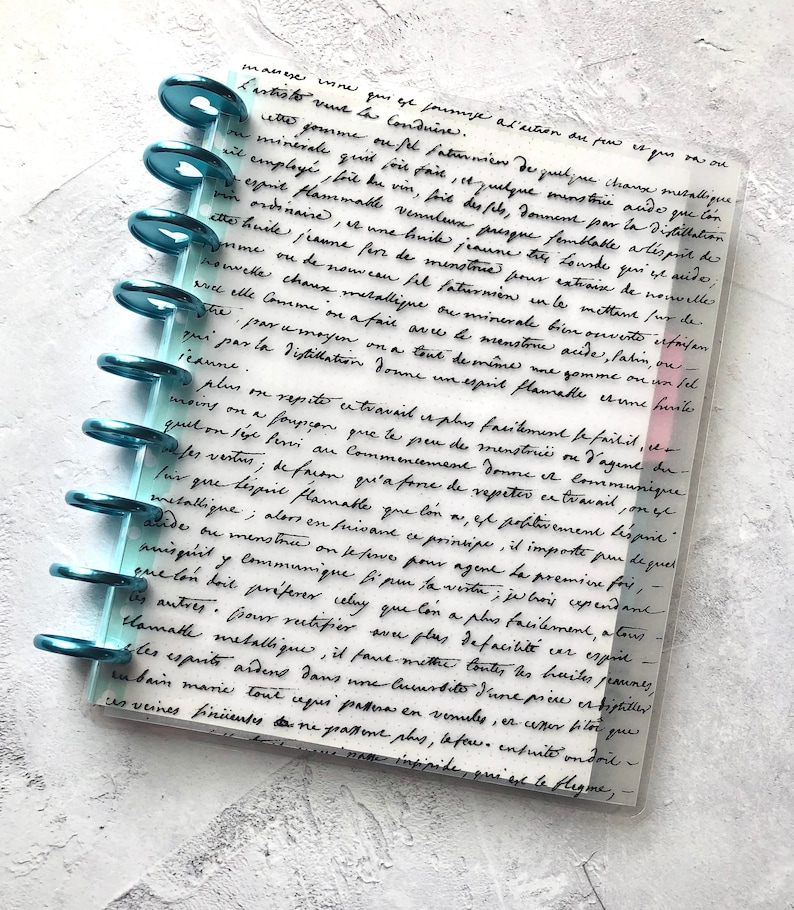 qui est fournise a l'action du feu et qui va ou
L'artiste veut la Conduire.
cette gomme ou sel saturnien de quelque chaux metallique
ou minérale quil soit fait, et quelque menstrüe acide que l'on
ait employé, soit du vin, soit des sels, donnent par la distillation
un esprit flammable venuleux presque semblable a l'esprit de
vin ordinaire, et une huile jeaune tres Lourde qui est acide;
cette huile jeaune sert de menstrüe pour extraire de nouvelle
gomme ou de nouveau sel saturnien en le mettant sur de
nouvelle chaux metallique ou minerale bien ouverte et faisan
avec elle Comme on a fait avec le menstrüe acide,
par ce moyen on a tout de même une gomme ou un sel
qui par la distillation donne un esprit flamable et une huile
jeaune.
plus on repete ce travail et plus facilement se fait il, et
moins on a soupçon que le peu de menstrüe ou d'agent du-
quel on s'est servi au Commencement donne et Communique
ses vertus; de façon qu'a force de repeter ce travail, on est
sur que l'esprit flamable que l'on a, est positivement l'esprit
metallique; alors en suivant ce principe, il importe peu de quel
acide ou menstrüe on se serve pour agent La premiere fois,
puisqu'il y Communique si peu sa vertu; je crois cependant
que l'on doit préferer celuy que l'on a plus facilement, a tous
les autres. pour rectifier avec plus de facilité cet esprit
flamable metallique, il faut mettre toutes les huiles jeaunes,
et les esprits ardens dans une Cucurbite d'une piece et distiller
au bain marie tout ce qui passera en venules, et cesser sitot que
ces veines sinüeuses ne passent plus, le feu. ensuite on doit
passe insipide, qui est le flegme,